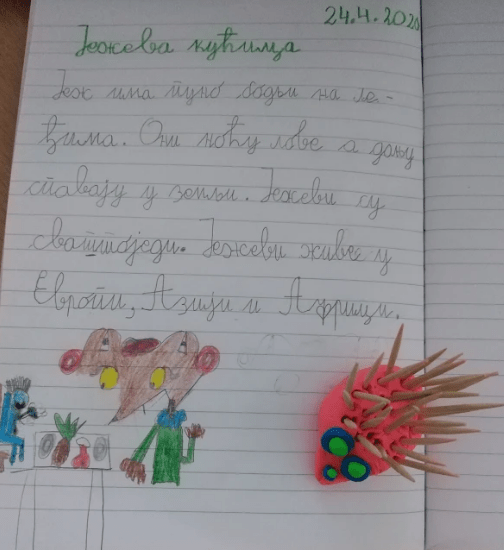 24.4.2020
Јежева кућица
Јеж има пуно бодљи на ле-
ђима. Они ноћу лове а дању
спавају у земљи. Јежеви су
сваштоједи. Јежеви живе у
Европи, Азији и Африци.